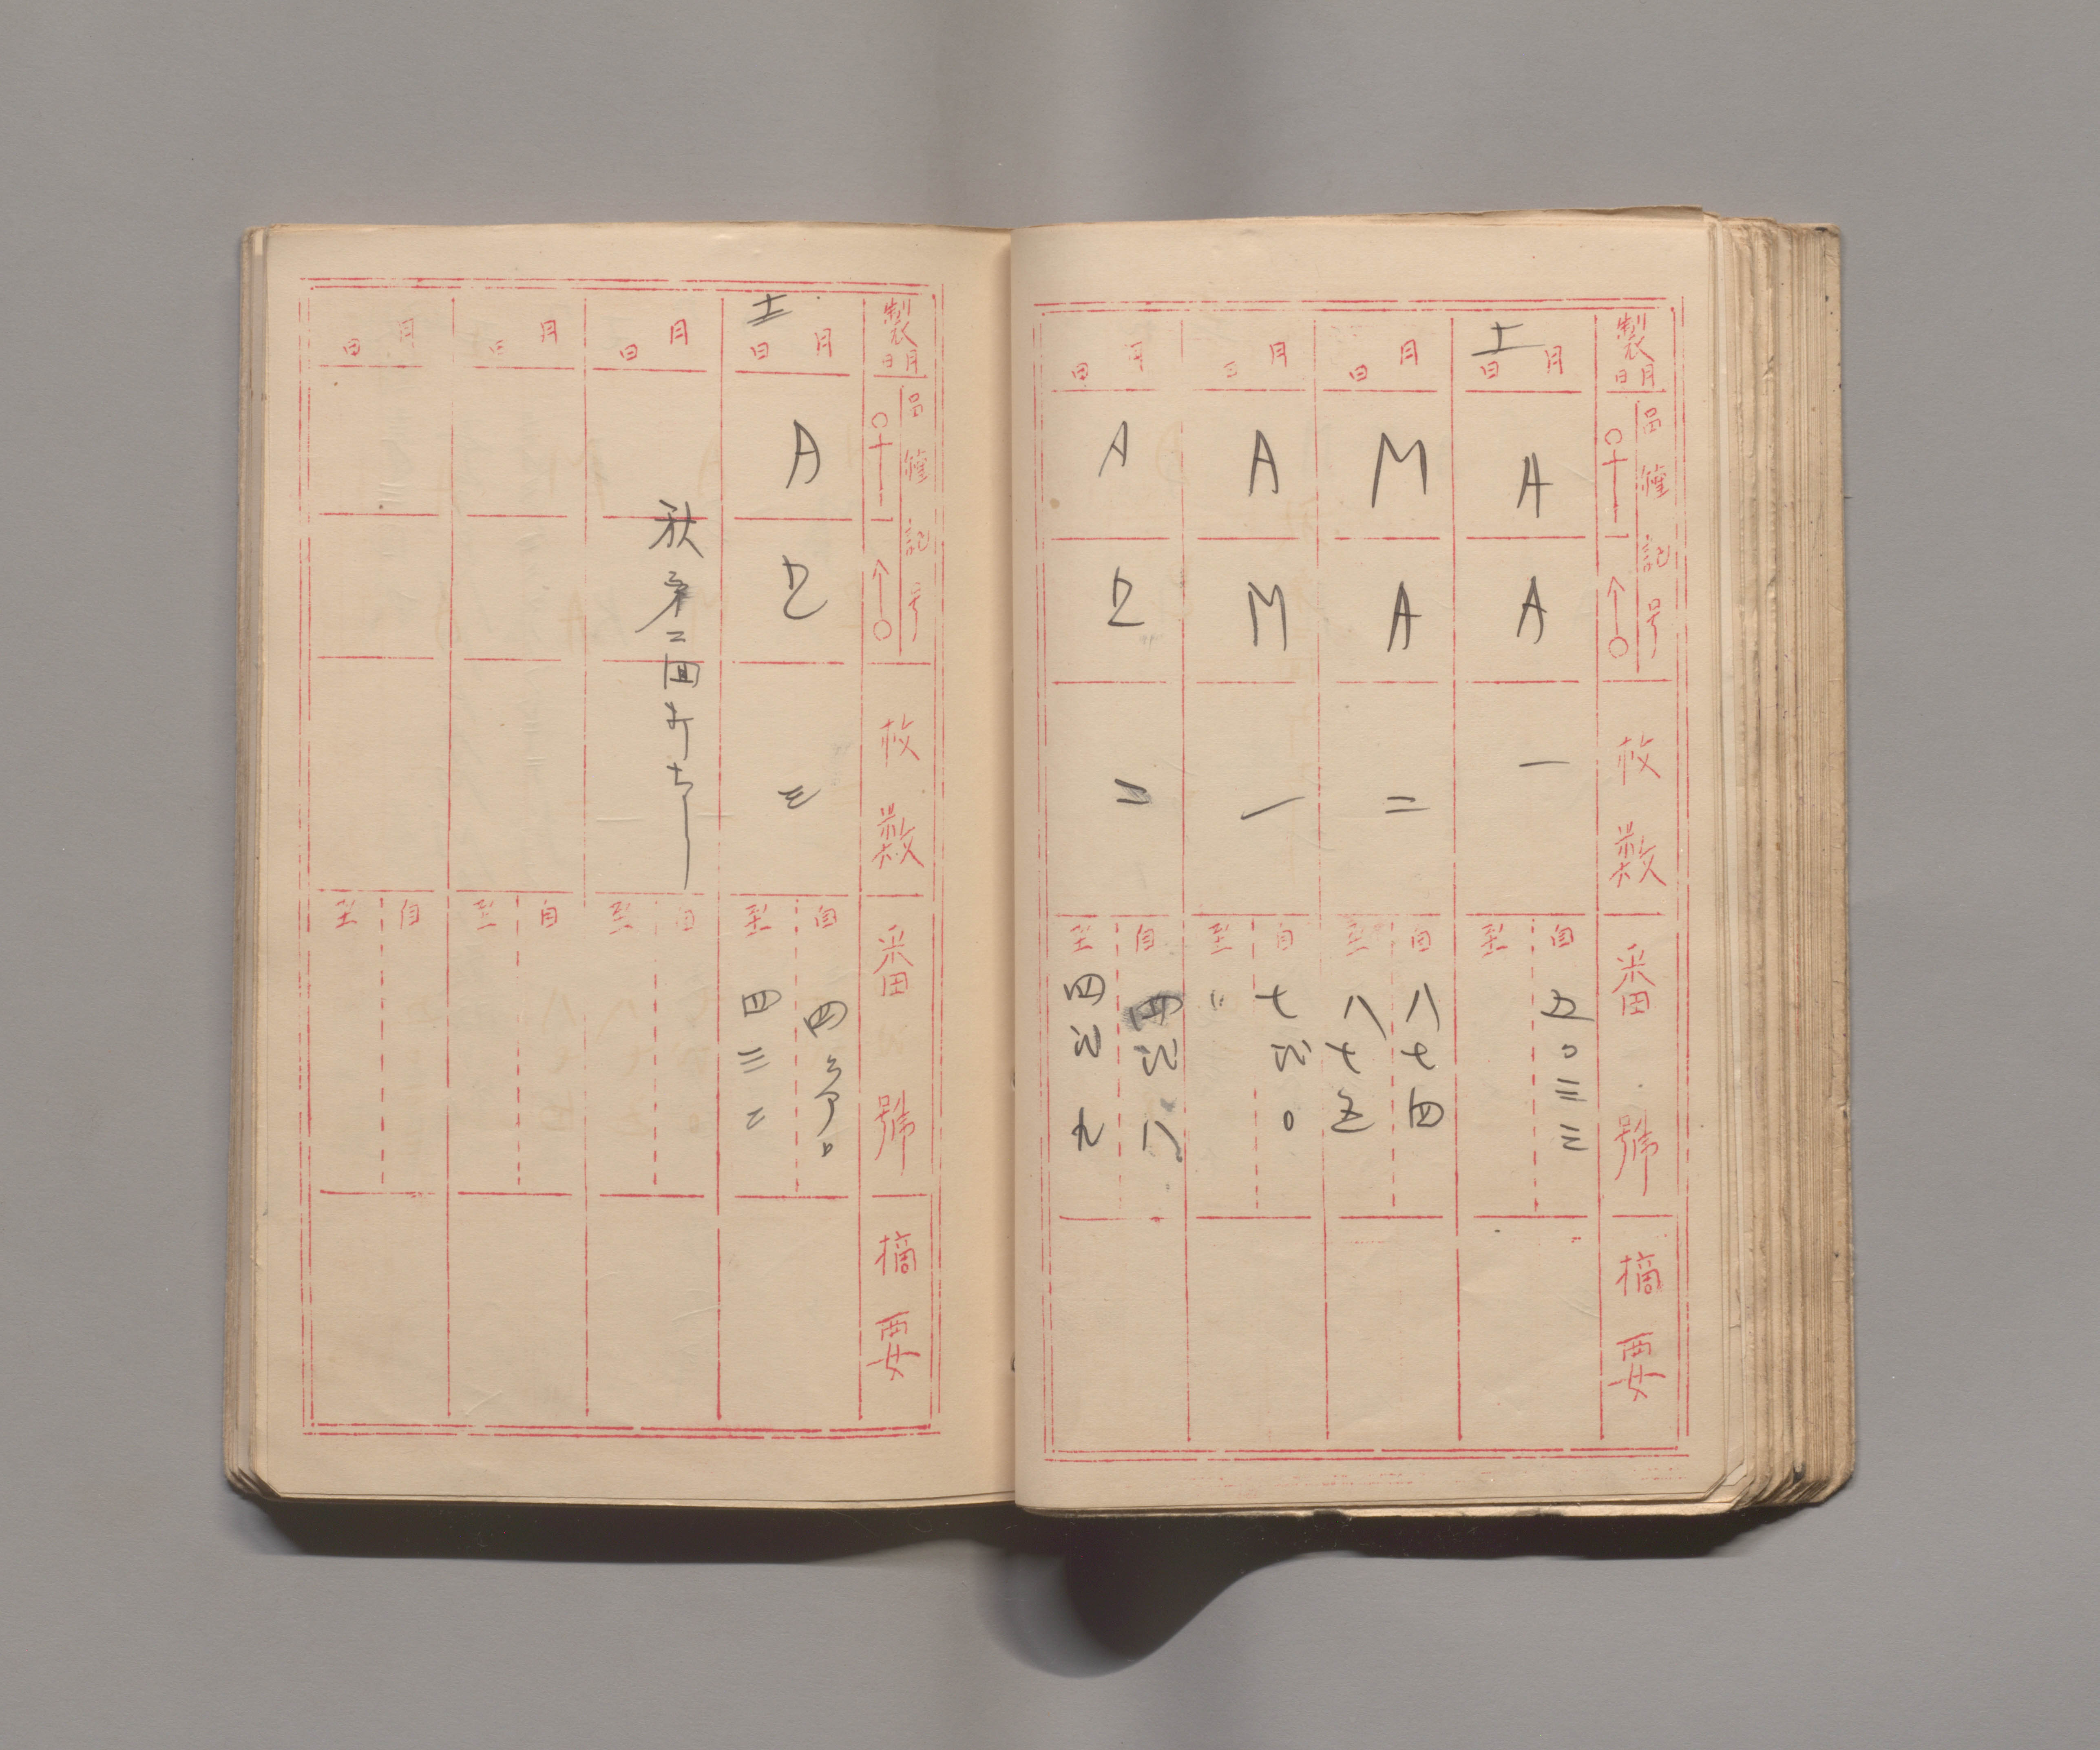 製月日 品種記号 ♀ ♂ 枚数 番號 摘要
月日 十一 A A 一 自 五〇三三 至
月日 M A 二 自 八七四 至 八七五
月日 A M 一 自 七弐〇 至 〃
月日 A 二 自 四弐八 至 四弐九
製月日 品種記号 ♀ ♂ 枚数 番號 摘要
月日 十一 A 三 自 四参〇 至 四三二
月日 秋第二回 自 至
月日 自 至
月日 自 至